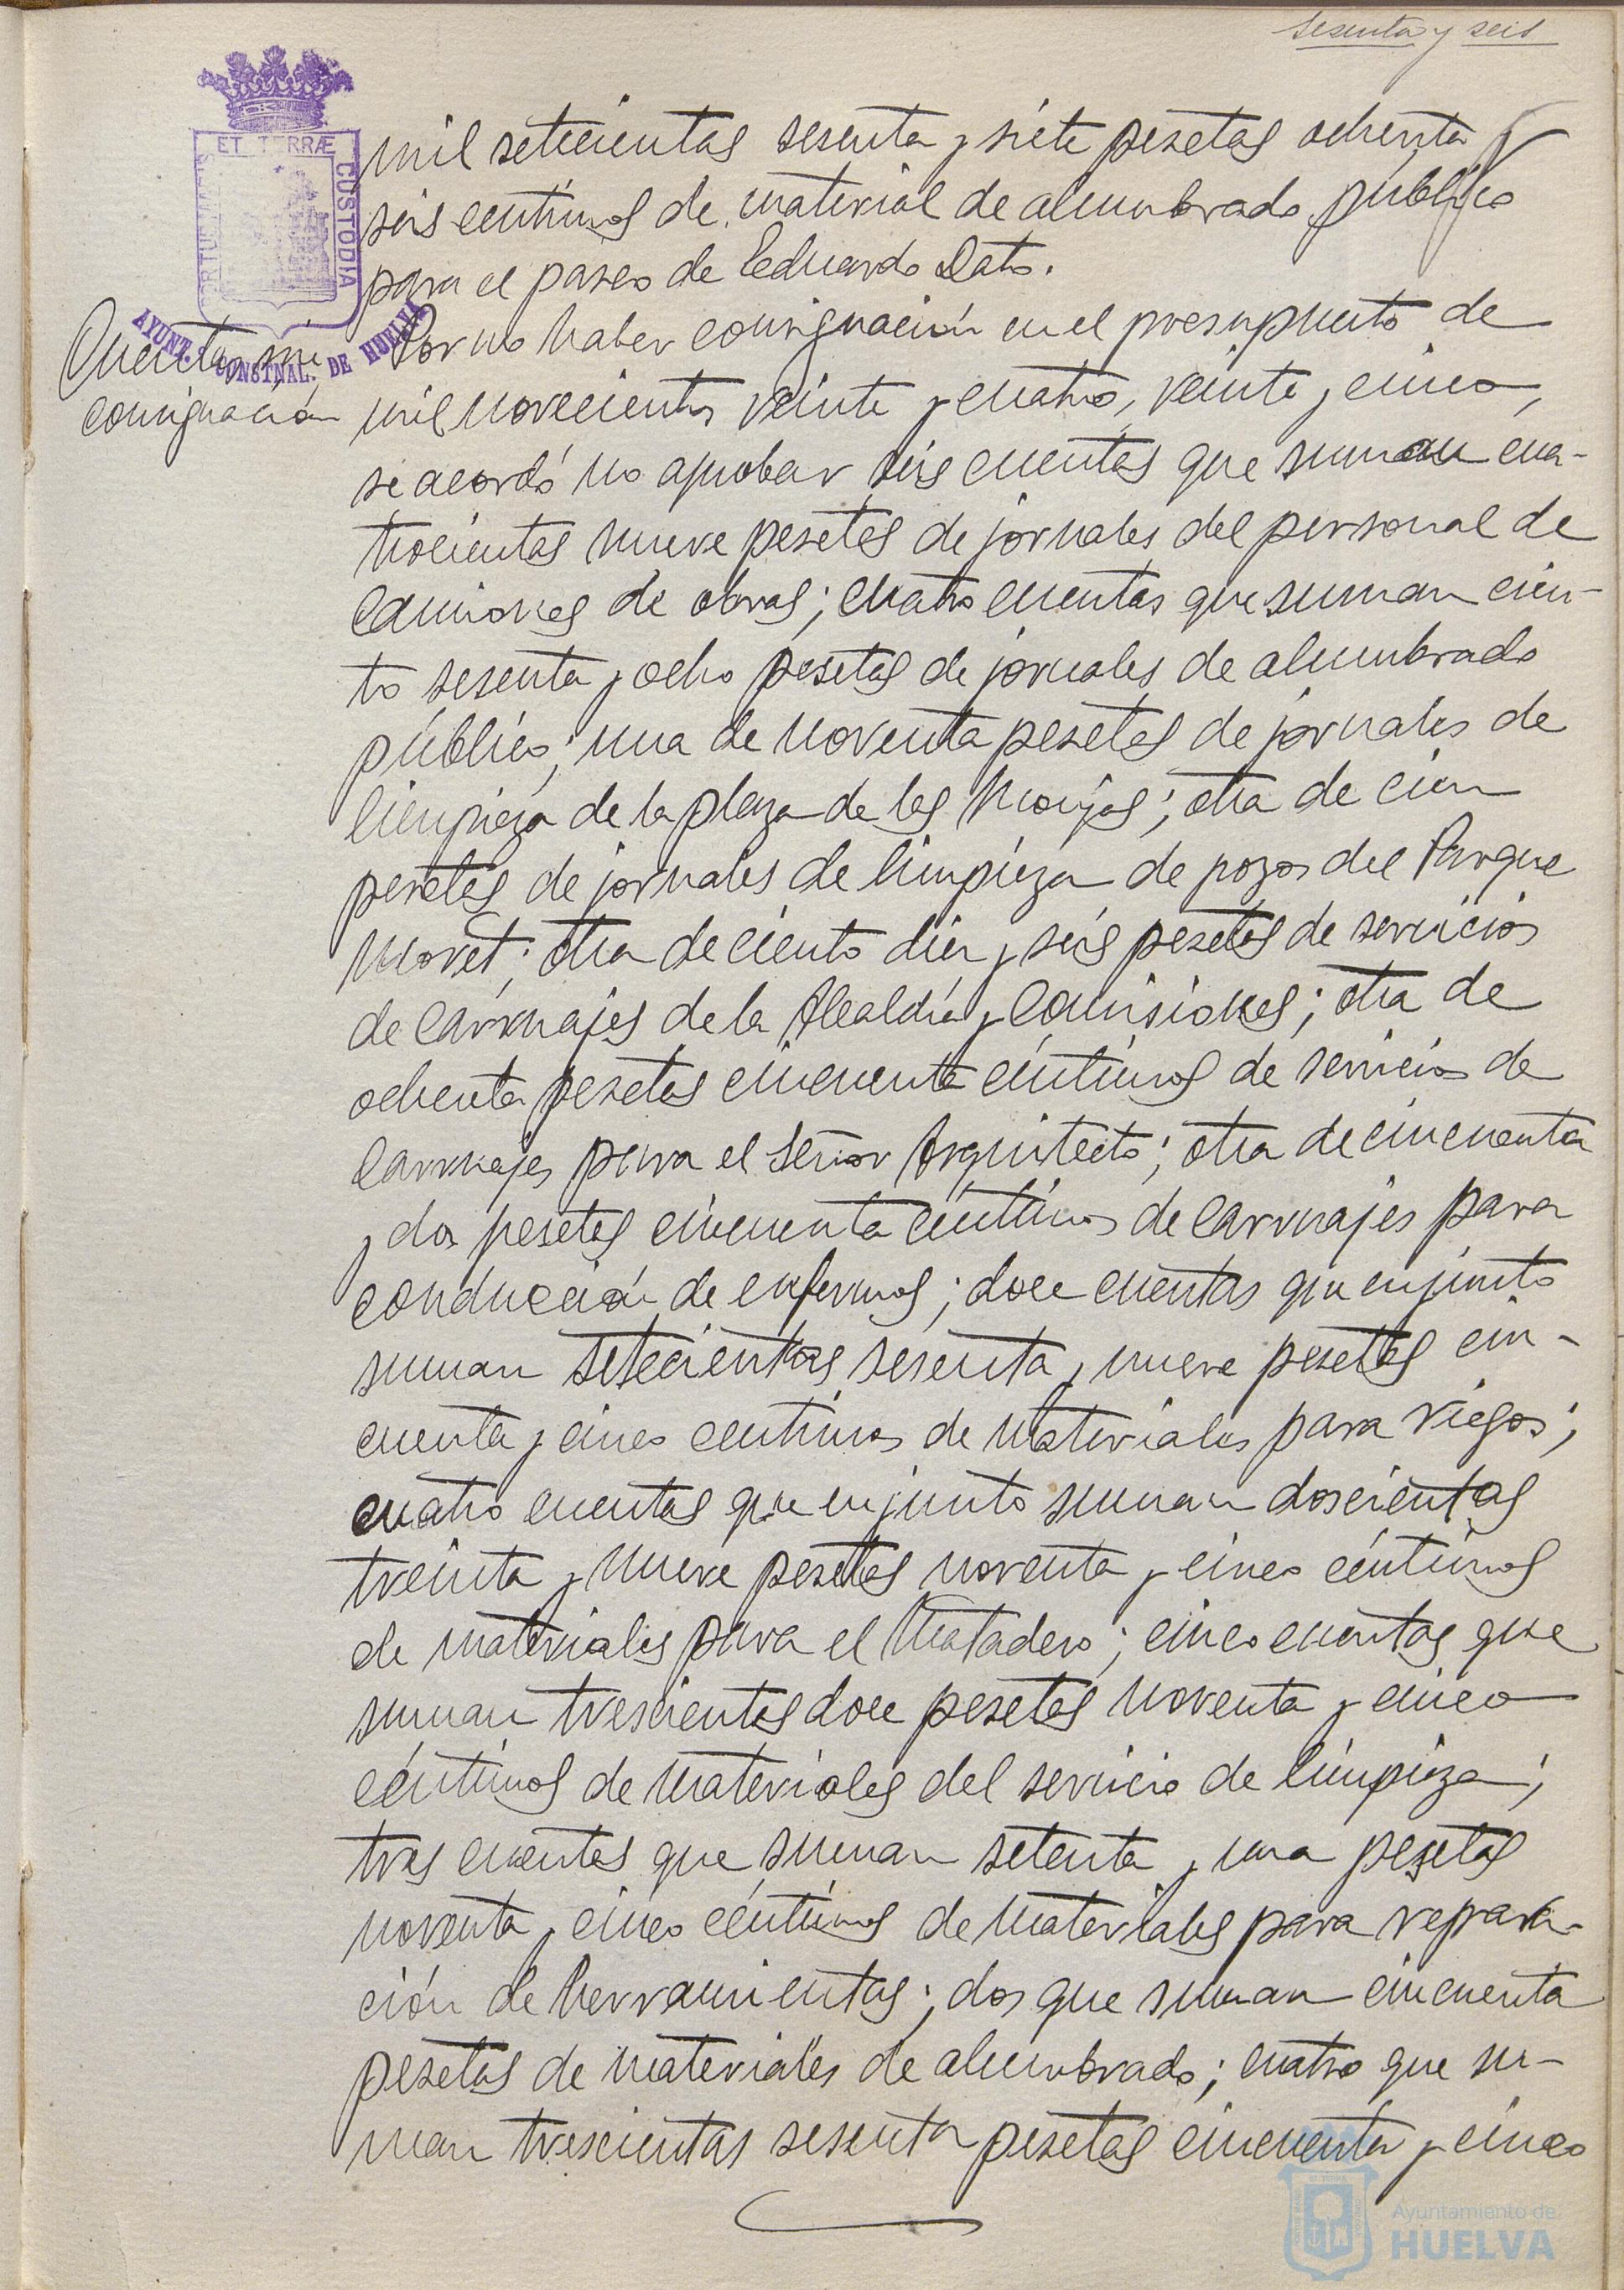 sesenta y seis
ET TERRÆ
CUSTODIA
AYUNT. CONSTNAL. DE HUELVA
mil setecientas sesenta y siete pesetas ochenta y
seis centimos de material de alumbrado público
para el paseo de Eduardo Dato.
Cuentas sin
consignación
Por no haber consignación en el presupuesto de
mil novecientos veinte y cuatro, veinte y cinco,
se acordó no aprobar seis cuentas que suman cua-
trocientas nueve pesetas de jornales del personal de
camiones de obras; cuatro cuentas que suman cien-
to sesenta y ocho pesetas de jornales de alumbrado
público; una de noventa pesetas de jornales de
limpieza de la plaza de las Monjas; otra de cien
pesetas de jornales de limpieza de pozos del Parque
Moret; otra de ciento diez y seis pesetas de servicios
de carruajes de la Alcaldía y Comisiones; otra de
ochenta pesetas cincuenta céntimos de servicios de
carruajes para el Señor Arquitecto; otra de cincuenta
y dos pesetas cincuenta céntimos de carruajes para
conducción de enfermos; doce cuentas que enjunto
suman setecientas sesenta y nueve pesetas cin-
cuenta y cinco centimos de materiales para riegos;
cuatro cuentas que enjunto suman doscientas
treinta y nueve pesetas noventa y cinco céntimos
de materiales para el Matadero; cinco cuentas que
suman trescientas doce pesetas noventa y cinco
céntimos de materiales del servicio de limpieza;
tres cuentas que suman setenta y una pesetas
noventa y cinco céntimos de materiales para repara-
ción de herramientas; dos que suman cincuenta
pesetas de materiales de alumbrado; cuatro que su-
man trescientas sesenta pesetas cincuenta y cinco
Ayuntamiento de
HUELVA